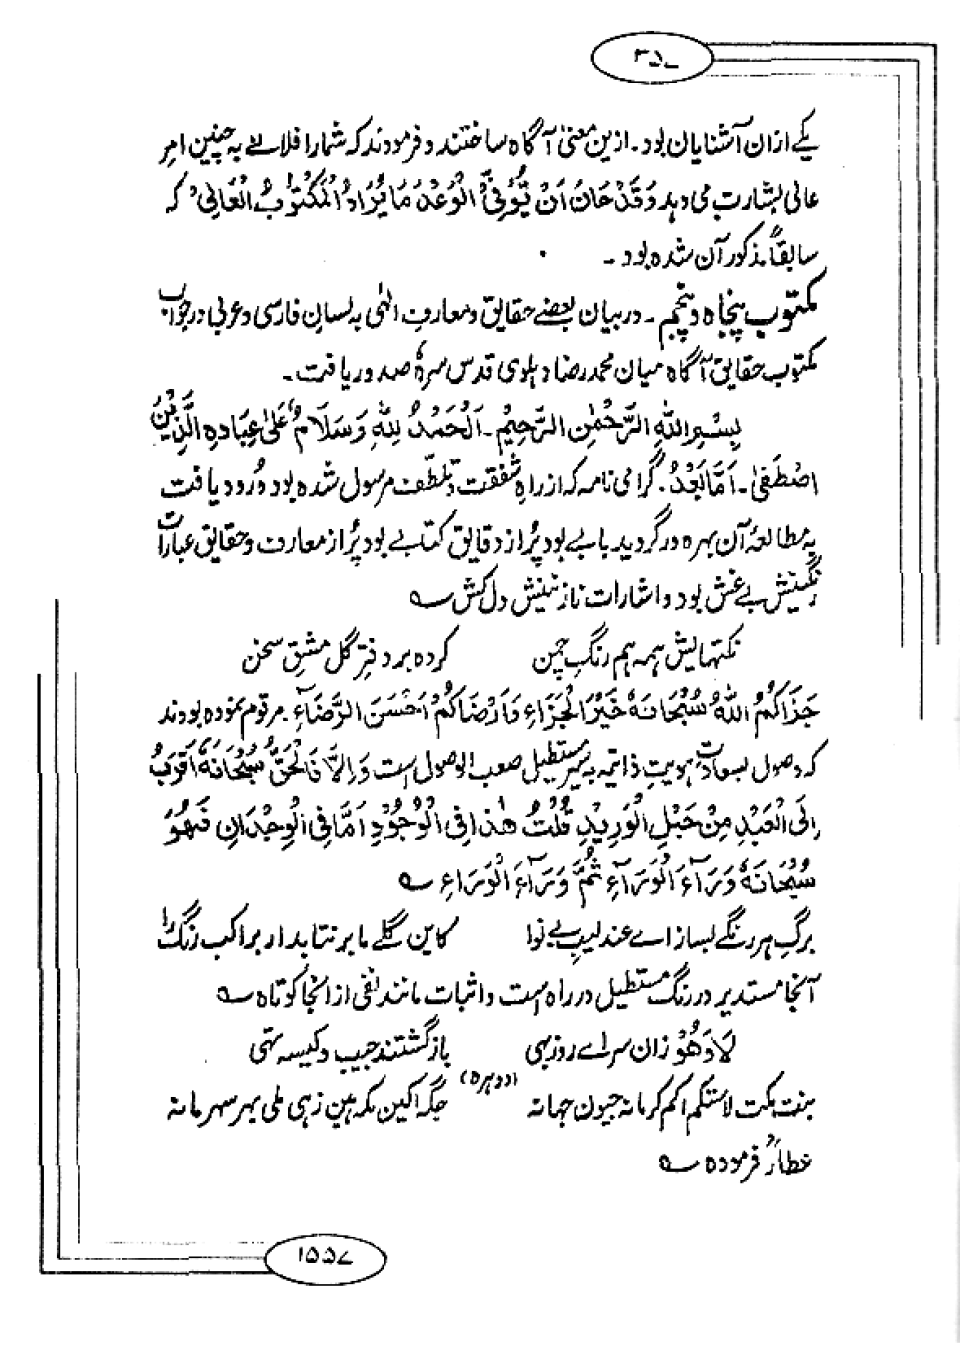 ۳۵۷
یکے ازان آشنایان بود۔ ازین معنیٰ آگاه ساختند و فرمودند که شمارا فلانے به چنین امرِ
عالی بشارت می دہد وَقَدْ حَانَ اَنْ یُّوَفِّیَ الْوَعْدُ مَا یُرَادُ الْمَکْتُوْبُ الْعَالِیْ که
سابقاً مذکور آن شده بود ۔
مکتوب پنجاه و پنجم ۔ در بیان بعضے حقایق و معارفِ الٰہی به لسانِ فارسی و عربی در جواب
مکتوبِ حقایق آگاه میان محمد رضا دہلوی قدس سرهٗ صدور یافت ۔
بِسْمِ اللهِ الرَّحْمٰنِ الرَّحِیْمِ ۔ اَلْحَمْدُ لِلّٰهِ وَسَلَامٌ عَلیٰ عِبَادِهِ الَّذِیْنَ
اصْطَفیٰ ۔ اَمَّا بَعْدُ ۔ گرامی نامه که از راهِ شفقت و تلطّف مرسول شده بود ورود یافت
به مطالعۂ آن بهره ور گردید بابے بود پُر از دقایق کتابے بود پُر از معارف و حقایق عبارات
رنگینش بے غش بود و اشارات نازنینش دل کش ؎
نکتهایش ہمه ہم رنگِ چمن کرده بر دفترِ گل مشقِ سخن
جَزَاکُمُ اللّٰهُ سُبْحَانَهٗ خَیْرَ الْجَزَاءِ وَاَرْضَاکُمْ اَحْسَنَ الرَّضَآءِ مرقوم نموده بودند
که وصول بسعادتِ ہویتِ ذاتیه به سیرِ مستطیل صعب الوصول است وَاِلَّا فَالْحَقُّ سُبْحَانَهٗ اَقْرَبُ
اِلَی الْعَبْدِ مِنْ حَبْلِ الْوَرِیْدِ قُلْتُ هٰذَا فِی الْوُجُوْدِ اَمَّا فِی الْوِجْدَانِ فَهُوَ
سُبْحَانَهٗ وَرَآءَ الْوَرَآءِ ثُمَّ وَرَآءَ الْوَرَاءِ ؎
برگِ ہر رنگے بساز اے عندلیبِ بے نوا کاین گلے ما بر نتابدار بر اکب رنگ را
آنجا مستدیر در رنگ مستطیل در راه است و اثبات مانند نفی از انجا کوتاه ؎
لَا وَهُوْ زان سرائے روز بهی بازگشتند جیب و کیسه تهی
(دوہره)
عطارؒ فرموده ؎
۱۵۵۷